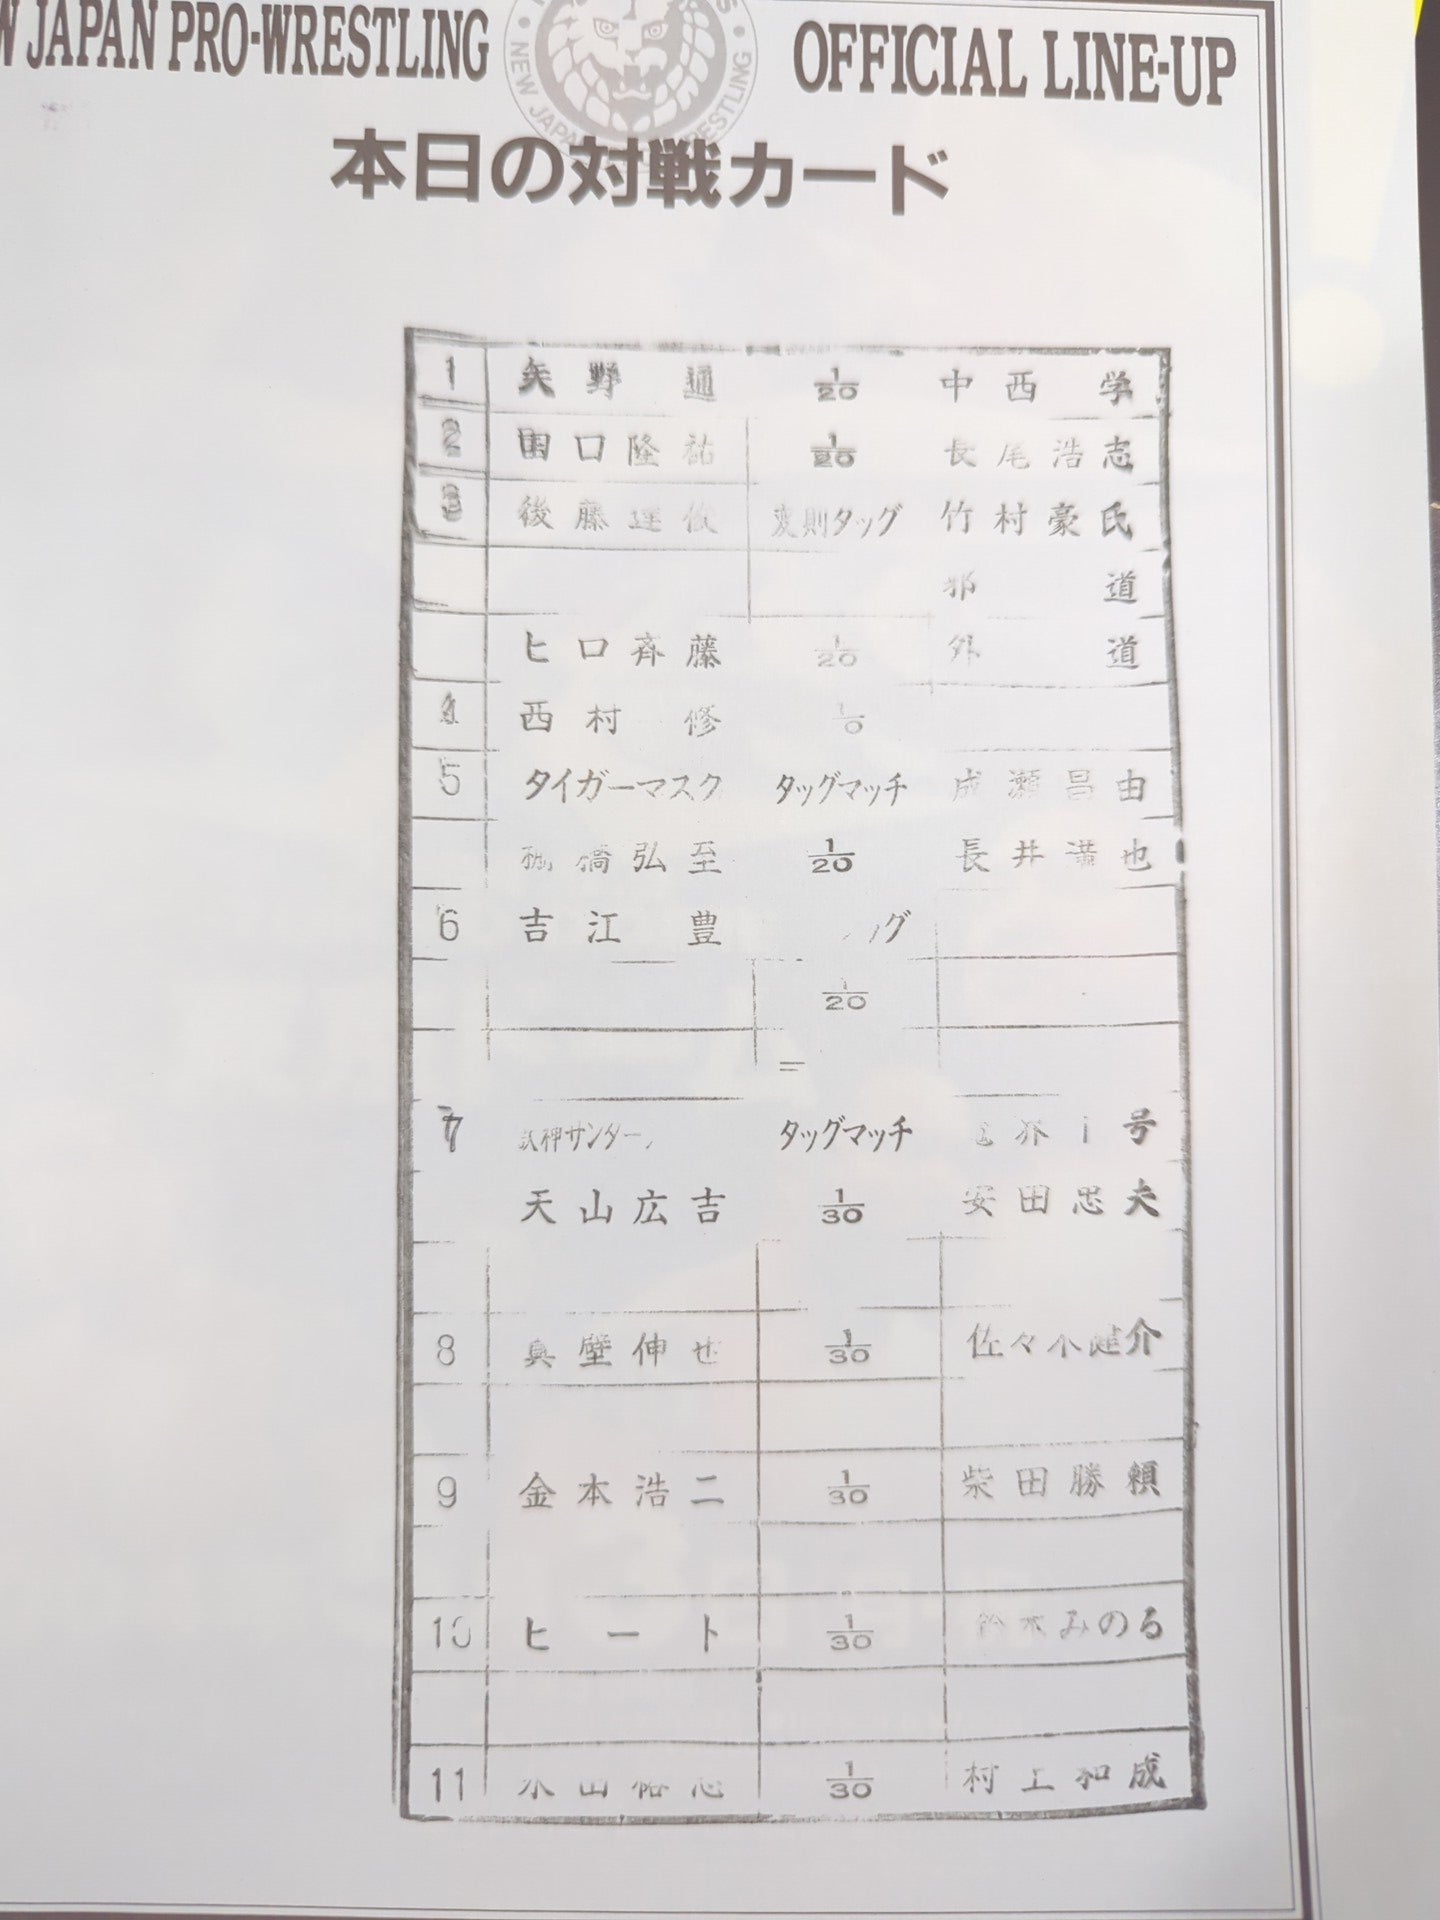 JAPAN PRO-WRESTLING
NEW JAPAN WRESTLING
OFFICIAL LINE-UP
本日の対戦カード
1 矢野 通 1/20 中西 学
2 田口隆祐 1/20 長尾浩志
3 後藤達俊 変則タッグ 竹村豪氏
邪道
ヒロ斉藤 1/20 外道
4 西村 修
5 タイガーマスク タッグマッチ 成瀬昌由
棚橋弘至 1/20 長井満也
6 吉江 豊 グ
1/20
7 獣神サンダー タッグマッチ 号
天山広吉 1/30 安田忠夫
8 真壁伸也 1/30 佐々木健介
9 金本浩二 1/30 柴田勝頼
10 ヒート 1/30 鈴木みのる
11 永田裕志 1/30 村上和成